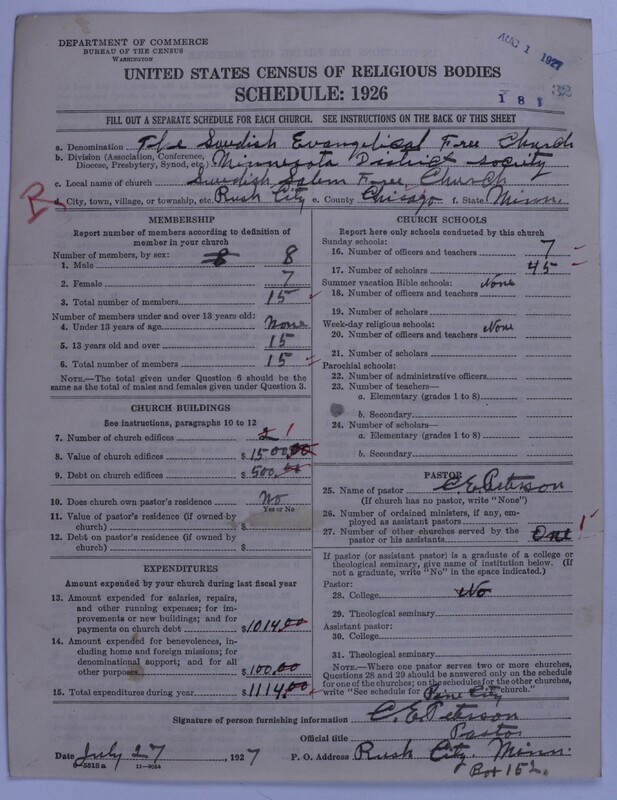 DEPARTMENT OF COMMERCE
BUREAU OF THE CENSUS
WASHINGTON
AUG 1 1927
UNITED STATES CENSUS OF RELIGIOUS BODIES
SCHEDULE: 1926
1 8 1 32
FILL OUT A SEPARATE SCHEDULE FOR EACH CHURCH. SEE INSTRUCTIONS ON THE BACK OF THIS SHEET
a. Denomination The Swedish Evangelical Free Church
b. Division (Association, Conference, Diocese, Presbytery, Synod, etc.) Minnezota District Society
c. Local name of church Swedish Salem Free Church
City, town, village, or township, etc. Rush City e. County Chicago f. State Minn.
MEMBERSHIP
Report number of members according to definition of
member in your church
Number of members, by sex: 8
1. Male 8
2. Female 7
3. Total number of members 15
Number of members under and over 13 years old:
4. Under 13 years of age None
5. 13 years old and over 15
6. Total number of members 15
NOTE.—The total given under Question 6 should be the
same as the total of males and females given under Question 3.
CHURCH BUILDINGS
See instructions, paragraphs 10 to 12
7. Number of church edifices 2 1
8. Value of church edifices $ 1500.00
9. Debt on church edifices $ 500.00
10. Does church own pastor's residence No
Yes or No
11. Value of pastor's residence (if owned by
church) $
12. Debt on pastor's residence (if owned by
church) $
EXPENDITURES
Amount expended by your church during last fiscal year
13. Amount expended for salaries, repairs,
and other running expenses; for im-
provements or new buildings; and for
payments on church debt $1014.00
14. Amount expended for benevolences, in-
cluding home and foreign missions; for
denominational support; and for all
other purposes $100.00
15. Total expenditures during year $1114.00
CHURCH SCHOOLS
Report here only schools conducted by this church
Sunday schools:
16. Number of officers and teachers 7
17. Number of scholars 45
Summer vacation Bible schools: None
18. Number of officers and teachers
19. Number of scholars
Week-day religious schools: None
20. Number of officers and teachers
21. Number of scholars
Parochial schools:
22. Number of administrative officers
23. Number of teachers—
a. Elementary (grades 1 to 8)
b. Secondary
24. Number of scholars—
a. Elementary (grades 1 to 8)
b. Secondary
PASTOR
25. Name of pastor C. E. Peterson
(If church has no pastor, write "None")
26. Number of ordained ministers, if any, em-
ployed as assistant pastors
27. Number of other churches served by the
pastor or his assistants One 1
If pastor (or assistant pastor) is a graduate of a college or
theological seminary, give name of institution below. (If
not a graduate, write "No" in the space indicated.)
Pastor:
28. College No
29. Theological seminary
Assistant pastor:
30. College
31. Theological seminary
NOTE.—Where one pastor serves two or more churches,
Questions 28 and 29 should be answered only on the schedule
for one of the churches; on the schedules for the other churches,
write "See schedule for Pine City church."
Signature of person furnishing information C. E. Peterson
Official title Pastor
Date July 27, 1927 P. O. Address Rush City, Minn.
Box 152.
8-5518a 11-9034